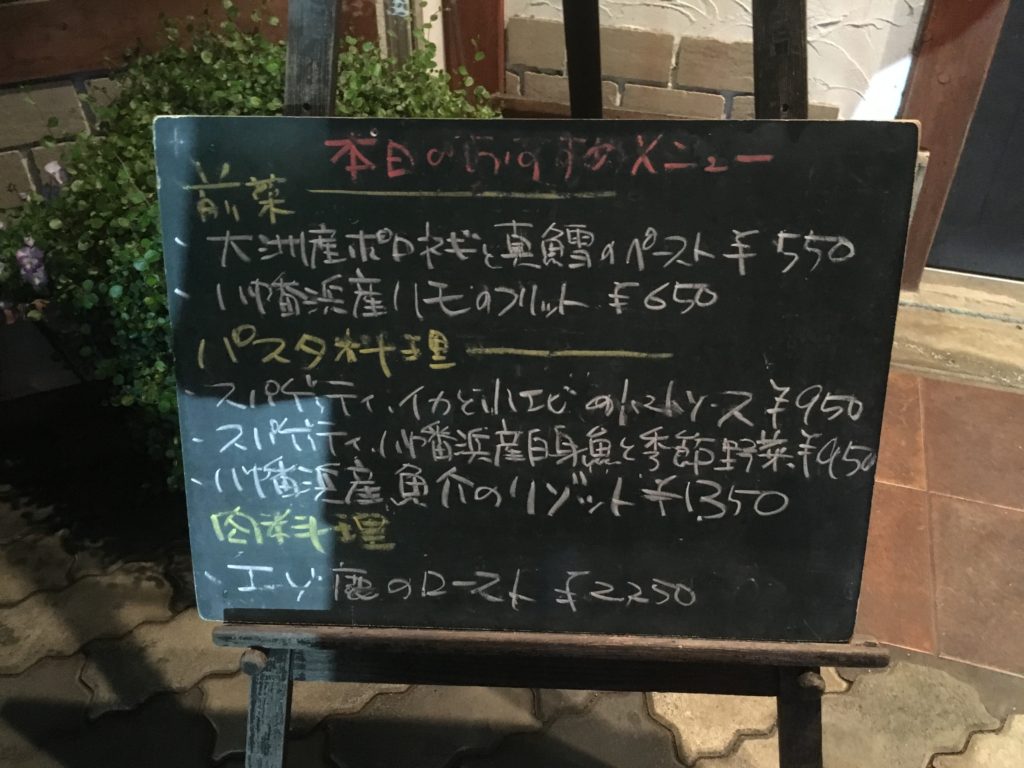 本日のおすすめメニュー
前菜
・大洲産ポロネギと真鱈のペースト ¥550
・八幡浜産ハモのフリット ¥650
パスタ料理
・スパゲッティ、イカと小エビのトマトソース ¥950
・スパゲッティ、八幡浜産白身魚と季節野菜 ¥950
・八幡浜産魚介のリゾット ¥1,350
肉料理
・エゾ鹿のロースト ¥2,250